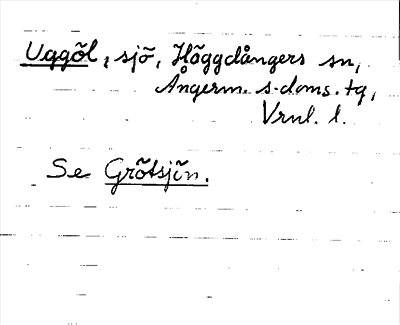 Uggöl, sjö, Häggdångers sn,
Ångerm. s. doms. tg,
Vrnl. l.
Se Grötsjön.